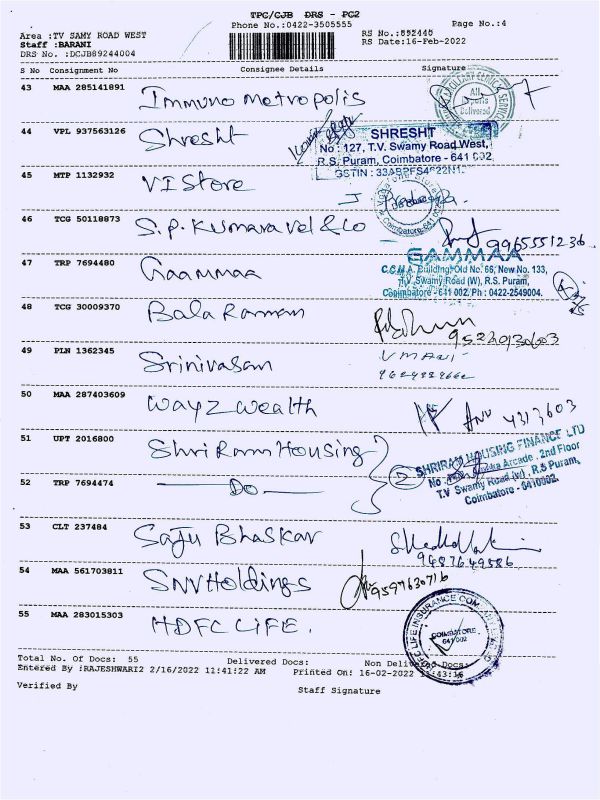 TPC/CJB DRS - PC2
Phone No.:0422-3505555
Page No.:4
Area :TV SAMY ROAD WEST
Staff :BARANI
DRS No. :DCJB89244004
RS No.:892440
RS Date:16-Feb-2022
S No Consignment No Consignee Details Signature
43 MAA 285141891 Immuno Metropolis
All
Reports
Delivered
44 VPL 937563126 Shresht
SHRESHT
No : 127, T.V. Swamy Road West,
R.S. Puram, Coimbatore - 641 002.
GSTIN :
45 MTP 1132932 VI Store
Coimbatore-641 002
46 TCG 50118873 S.P. Kumaravel & Co
9965551236
47 TRP 7694480 Gaammaa
GAMMAA
C.C.M.A. Building, Old No. 66, New No. 133,
T.V. Swamy Road (W), R.S. Puram,
Coimbatore - 641 002. Ph : 0422-2549004.
48 TCG 30009370 Bala Raman
49 PLN 1362345 Srinivasan
V MANI
50 MAA 287403609 Wayz Wealth
4313603
51 UPT 2016800 Shri Ram Housing
2
SHRIRAM HOUSING FINANCE LTD
Arcade, 2nd Floor
T.V Swamy Road (w), R.S Puram,
Coimbatore - 641002.
52 TRP 7694474 — Do —
53 CLT 237484 Saju Bhaskar
9487649586
54 MAA 561703811 SNV Holdings
9597630716
55 MAA 283015303 HDFC LIFE.
LIFE INSURANCE COM
COIMBATORE
641 002
Total No. Of Docs: 55 Delivered Docs: Non Delivered Docs:
Entered By :RAJESHWARI2 2/16/2022 11:41:22 AM Printed On: 16-02-2022 11:43:16
Verified By Staff Signature